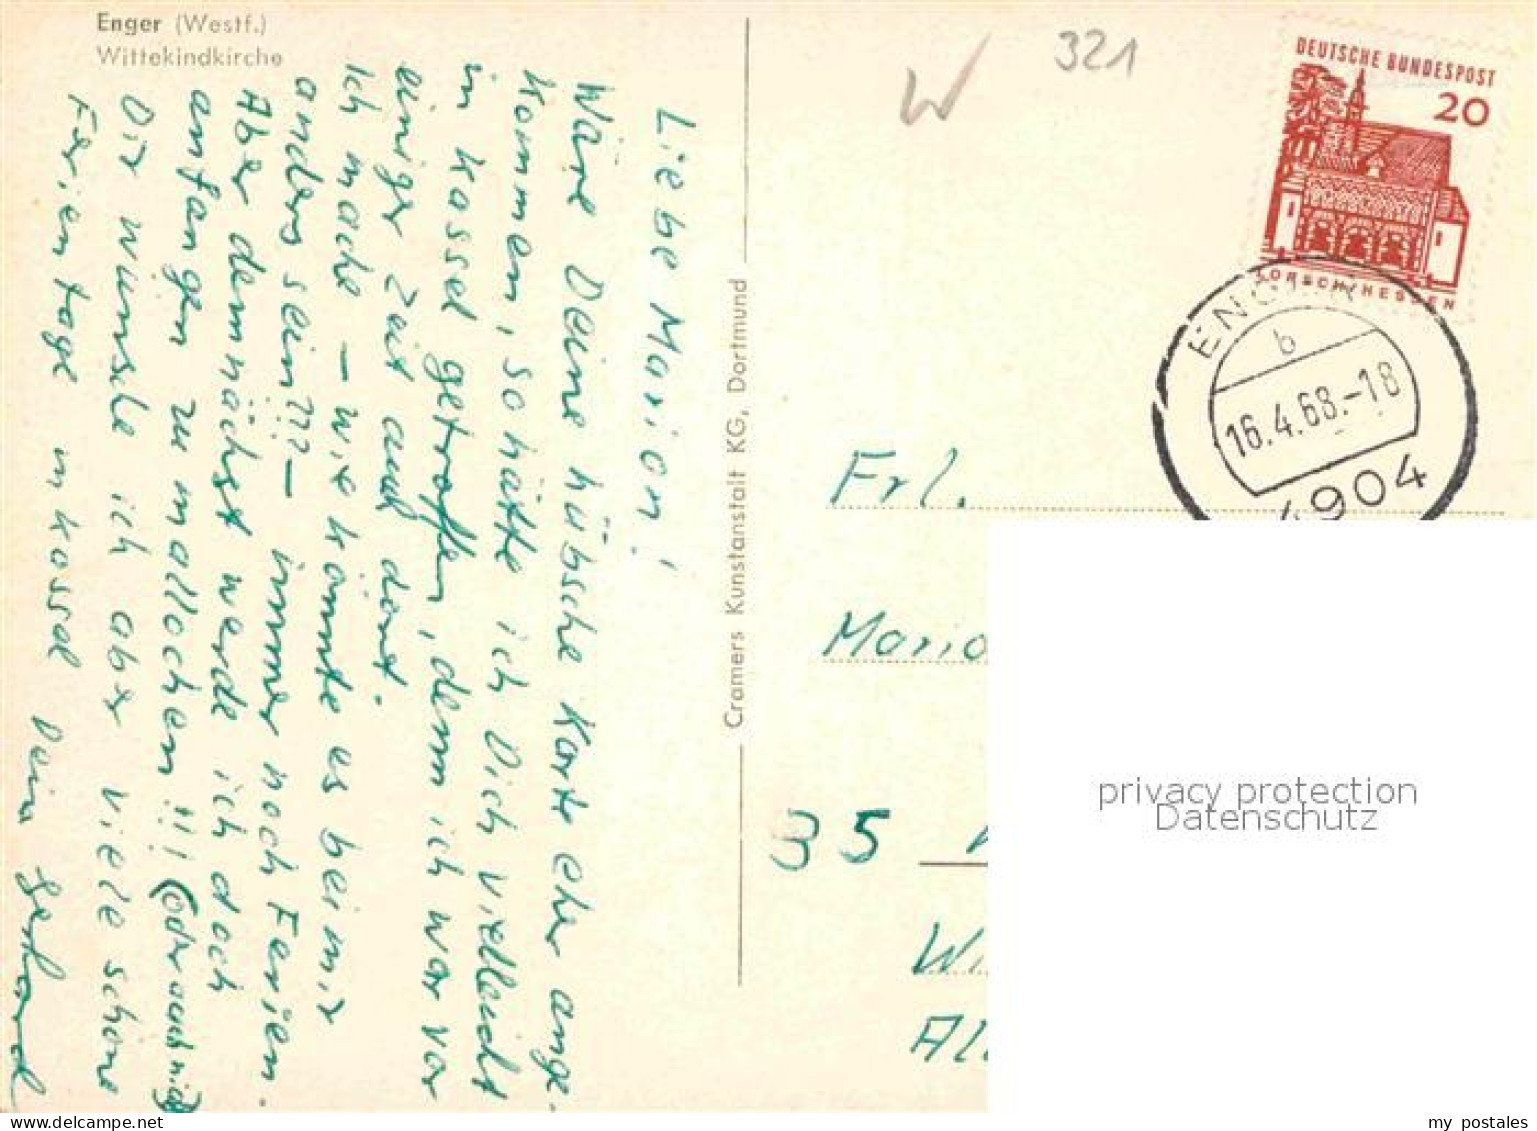 Enger (Westf.)
Wittekindkirche
Liebe Marion!
Wäre Deine hübsche Karte eher ange-
kommen, so hätte ich Dich vielleicht
in Kassel getroffen, denn ich war vor
einiger Zeit auch dort.
Ich mache – wie könnte es bei mir
anders sein??? – immer noch Ferien.
Aber demnächst werde ich doch
anfangen zu mallochen!!! (oder auch nicht)
Dir wünsche ich aber viele schöne
Ferientage in Kassel Dein Gerhard
Cramers Kunstanstalt KG, Dortmund
W
321
DEUTSCHE BUNDESPOST
20
LORSCH/HESSEN
ENGER
b
16.4.68.-18
4904
Frl.
Mario
35
Wi
Al
privacy protection
Datenschutz
my postales